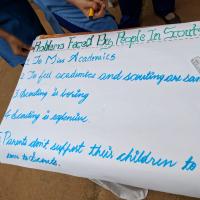 Problems Faced By People In Scouts
1. To Miss Academics
2. To feel academics and scouting are sam
3. Scouting is boring
4. Scouting is expensive
5. Parents don't support their children to